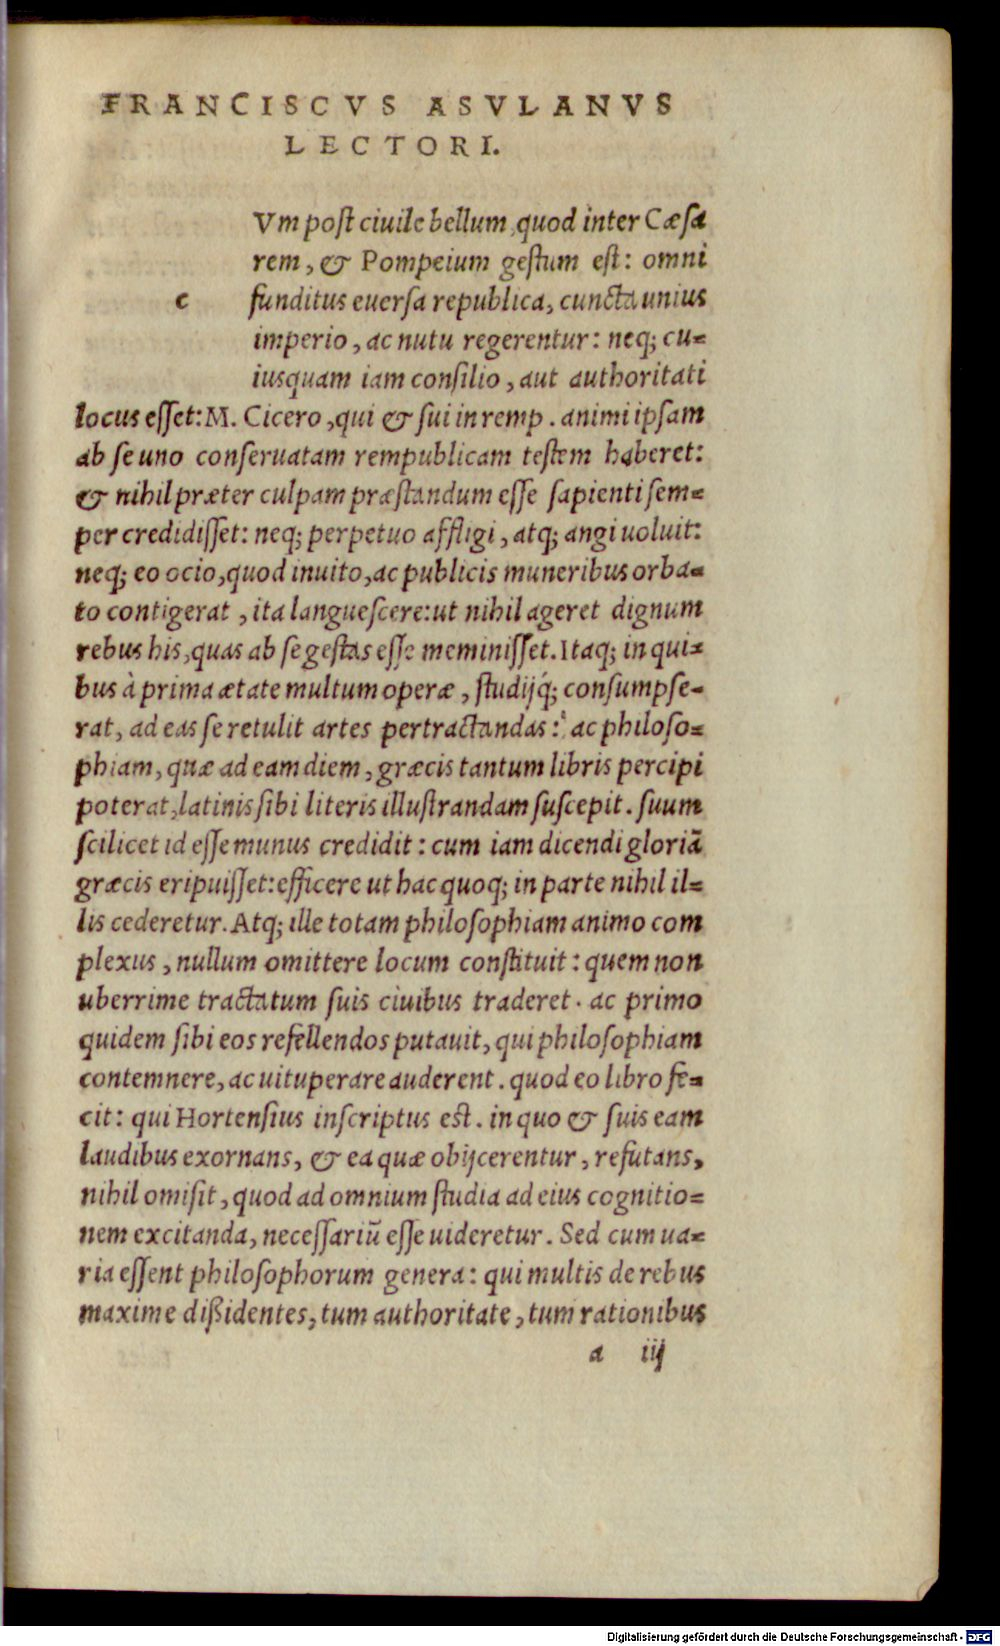 FRANCISCVS ASVLANVS
LECTORI.
Vm post ciuile bellum, quod inter Cæsa
rem, & Pompeium gestum est: omni
c funditus euersa republica, cuncta unius
imperio, ac nutu regerentur: neq; cu-
iusquam iam consilio, aut authoritati
locus esset: M. Cicero, qui & sui in remp. animi ipsam
ab se uno conseruatam rempublicam testem haberet:
& nihil præter culpam præstandum esse sapienti sem-
per credidisset: neq; perpetuo affligi, atq; angi uoluit:
neq; eo ocio, quod inuito, ac publicis muneribus orba-
to contigerat, ita languescere: ut nihil ageret dignum
rebus his, quas ab se gestas esse meminisset. Itaq; in qui-
bus à prima ætate multum operæ, studijq́; consumpse-
rat, ad eas se retulit artes pertractandas: ac philoso-
phiam, quæ ad eam diem, græcis tantum libris percipi
poterat, latinis sibi literis illustrandam suscepit. suum
scilicet id esse munus credidit: cum iam dicendi gloriã
græcis eripuisset: efficere ut hac quoq; in parte nihil il-
lis cederetur. Atq; ille totam philosophiam animo com
plexus, nullum omittere locum constituit: quem non
uberrime tractatum suis ciuibus traderet. ac primo
quidem sibi eos refellendos putauit, qui philosophiam
contemnere, ac uituperare auderent. quod eo libro fe-
cit: qui Hortensius inscriptus est. in quo & suis eam
laudibus exornans, & ea quæ obijcerentur, refutans,
nihil omisit, quod ad omnium studia ad eius cognitio-
nem excitanda, necessariũ esse uideretur. Sed cum ua-
ria essent philosophorum genera: qui multis de rebus
maxime dißidentes, tum authoritate, tum rationibus
a iij
Digitalisierung gefördert durch die Deutsche Forschungsgemeinschaft - DFG